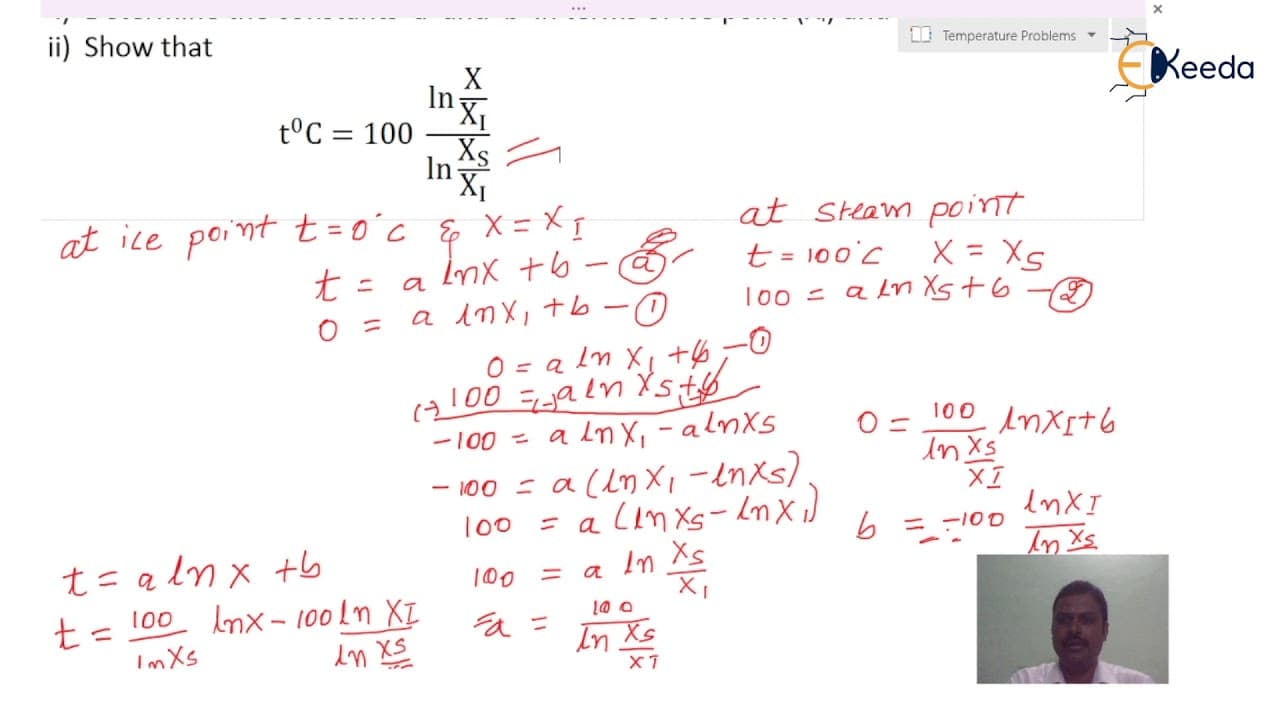 Temperature Problems
EKeeda
ii) Show that
t⁰C = 100 ln X/X_I / ln X_S/X_I
at ice point t = 0°C & X = X_I
t = a lnX + b - ⓐ
0 = a lnX₁ + b - ①
at steam point
t = 100°C X = X_S
100 = a ln X_S + b - ②
0 = a ln X₁ + b - ①
(-) 100 = (-) a ln X_S + b
-100 = a ln X₁ - a ln X_S
-100 = a (ln X₁ - ln X_S)
100 = a (ln X_S - ln X₁)
100 = a ln X_S/X₁
a = 100 / ln X_S/X_I
0 = 100 / ln X_S/X_I lnX_I + b
b = -100 lnX_I / ln X_S
t = a ln x + b
t = 100 / ln X_S lnx - 100 ln X_I / ln X_S